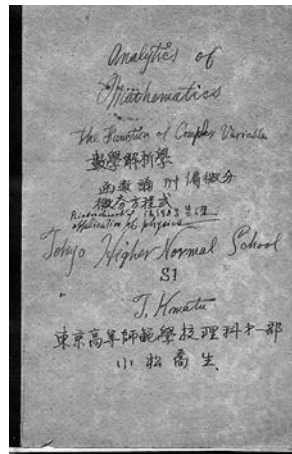 Analytics of
Mathematics
The Function of Complex Variable
數學解析學
函数論 附 偏微分
微分方程式
application of physics
Tokyo Higher Normal School
S1
T. Komatu
東京高等師範學校理科才一部
小松喬生